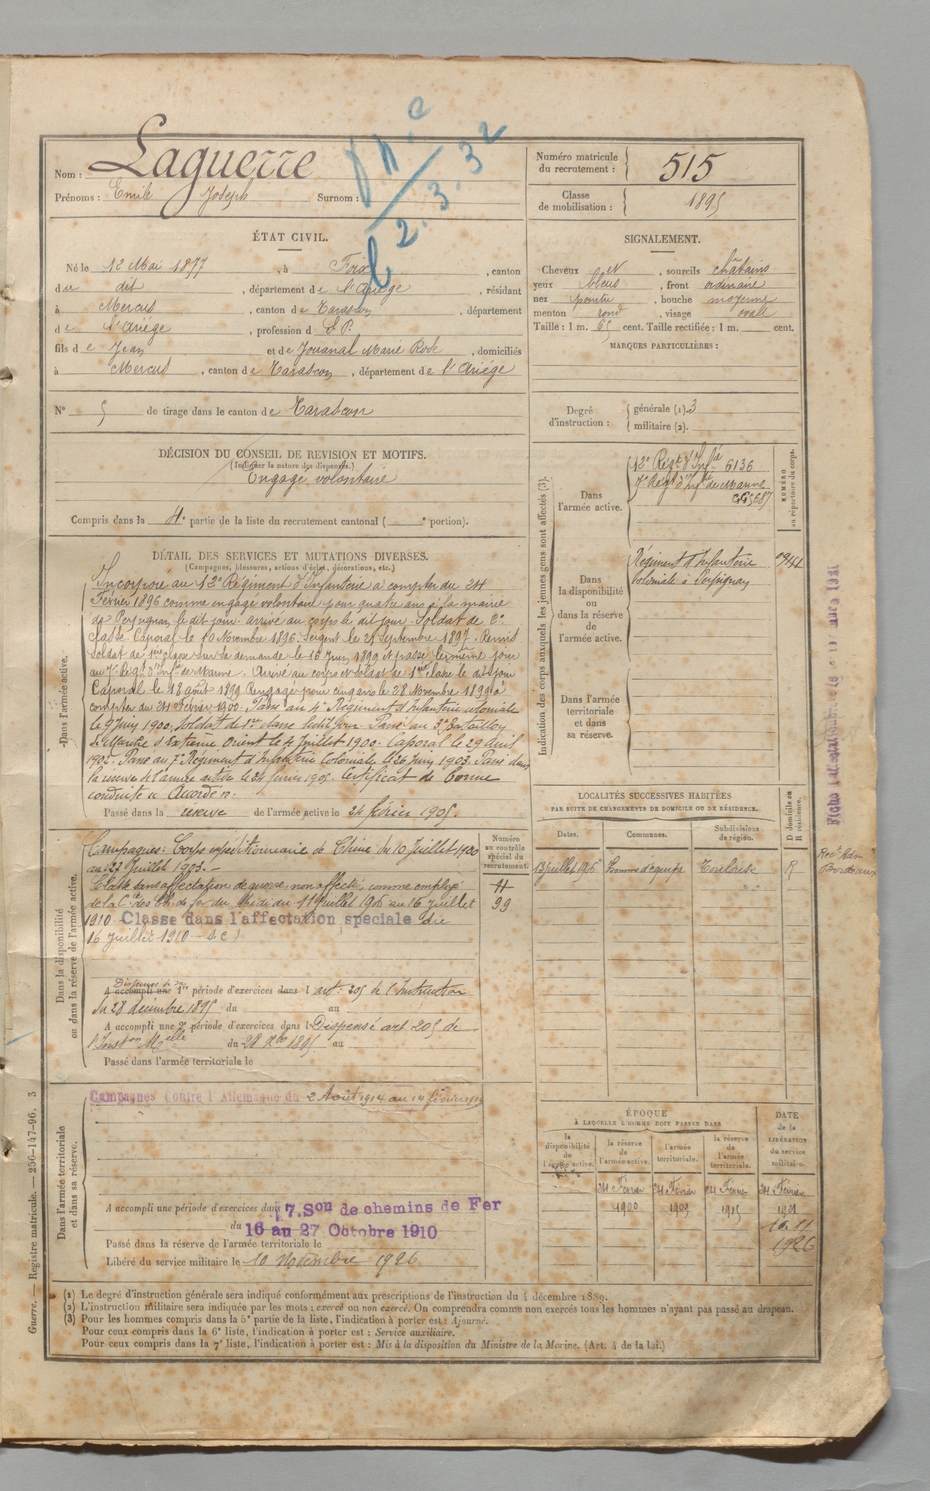 Nom : Laguerre
Prénoms : Emile Joseph Surnom :
2.3.32
Numéro matricule du recrutement : 515
Classe de mobilisation : 1895
ÉTAT CIVIL.
Né le 12 Mai 1877, à Foix, canton
du dit, département de l'Ariège, résidant
à Mercus, canton de Tarascon, département
de l'Ariège, profession d S.P.
fils de Jean et de Jouanal Marie Rose, domiciliés
à Mercus, canton de Tarascon, département de l'Ariège
N° 5 de tirage dans le canton de Tarascon
SIGNALEMENT.
Cheveux et, sourcils châtains
yeux bleus, front ordinaire
nez pointu, bouche moyenne
menton rond, visage ovale
Taille : 1 m. 65 cent. Taille rectifiée : 1 m. cent.
MARQUES PARTICULIÈRES :
Degré d'instruction : générale (1). 3
militaire (2).
DÉCISION DU CONSEIL DE REVISION ET MOTIFS.
(Indiquer la nature des dispenses.)
Engagé volontaire
Compris dans la 4e partie de la liste du recrutement cantonal ( e portion).
DÉTAIL DES SERVICES ET MUTATIONS DIVERSES.
(Campagnes, blessures, actions d'éclat, décorations, etc.)
Dans l'armée active.
Incorporé au 12e Régiment d'Infanterie à compter du 24
Février 1896 comme engagé volontaire pour quatre ans à la mairie
de Perpignan, le dit jour. arrivé au corps le dit jour. Soldat de 2e
classe Caporal le 10 Novembre 1896. Sergent le 21 Septembre 1897. Remis
Soldat de 1ere classe sur sa demande le 16 Juin 1899 et passé le même jour
au 7e Régt d'Infie de Marine. Arrivé au corps et soldat de 1ere classe le dit jour
Caporal le 18 août 1899 Rengagé pour cinq ans le 28 Novembre 1899 à
compter du 24 Février 1900. Passé au 4e Régiment d'Infanterie coloniale
le 9 Juin 1900, soldat de 1re classe ledit jour. Passé au 3e Bataillon
de Marche d'Extrême Orient le 4 Juillet 1900. Caporal le 29 Avril
1902. Passé au 7e Régiment d'Infanterie Coloniale le 26 Juin 1903. Passé dans
la réserve de l'armée active le 24 février 1905. Certificat de bonne
conduite "Accordé".
Passé dans la réserve de l'armée active le 24 février 1905.
Indication des corps auxquels les jeunes gens sont affectés (3).
NUMÉRO au répertoire du corps.
Dans l'armée active.
12e Régt d'Infie 6136
7e Régt d'Infie de Marine
5687
Dans la disponibilité ou dans la réserve de l'armée active.
Régiment d'Infanterie
coloniale à Perpignan 0944
Dans l'armée territoriale et dans sa réserve.
Dans la disponibilité ou dans la réserve de l'armée active.
Numéro au contrôle spécial du recrutement.
Campagnes : Corps expéditionnaire de Chine du 10 Juillet 1900
au 27 Juillet 1903.
Classé dans affectation de guerre, non affecté, comme employé
de la Cie des Ch. de fer du Midi du 11 Juillet 1906 au 16 juillet
1910 Classé dans l'affectation spéciale dudit
16 juillet 1910
H
99
Dispensé de sa
A accompli une 1re période d'exercices dans l art. 205 de l'Instruction
du 28 décembre 1895 du au
A accompli une 2e période d'exercices dans l Dispensé art 205 de
l'Inston Melle du 28 Xbre 1895 au
Passé dans l'armée territoriale le
LOCALITÉS SUCCESSIVES HABITÉES
PAR SUITE DE CHANGEMENTS DE DOMICILE OU DE RÉSIDENCE.
D domicile ou R résidence.
Dates. Communes. Subdivisions de région.
13 juillet 1906 Toulouse R
Bordeaux
Dans l'armée territoriale et dans sa réserve.
Campagnes Contre l'Allemagne du 2 Août 1914 au 14 février 1919
A accompli une période d'exercices dans 7.Son de chemins de Fer
du 16 au 27 Octobre 1910
Passé dans la réserve de l'armée territoriale le
Libéré du service militaire le 10 Novembre 1926
ÉPOQUE
À LAQUELLE L'HOMME DOIT PASSER DANS
DATE de la LIBÉRATION du service militaire.
la disponibilité de l'armée active. la réserve de l'armée active. l'armée territoriale. la réserve de l'armée territoriale.
24 Février 1900 24 Février 1909 24 Février 1915 24 Février 1921
10.11
1926
(1) Le degré d'instruction générale sera indiqué conformément aux prescriptions de l'instruction du 4 décembre 1889.
(2) L'instruction militaire sera indiquée par les mots : exercé ou non exercé. On comprendra comme non exercés tous les hommes n'ayant pas passé au drapeau.
(3) Pour les hommes compris dans la 5e partie de la liste, l'indication à porter est : Ajourné.
Pour ceux compris dans la 6e liste, l'indication à porter est : Service auxiliaire.
Pour ceux compris dans la 7e liste, l'indication à porter est : Mis à la disposition du Ministre de la Marine. (Art. 4 de la loi.)
Guerre. — Registre matricule. — 256-147-96. 3